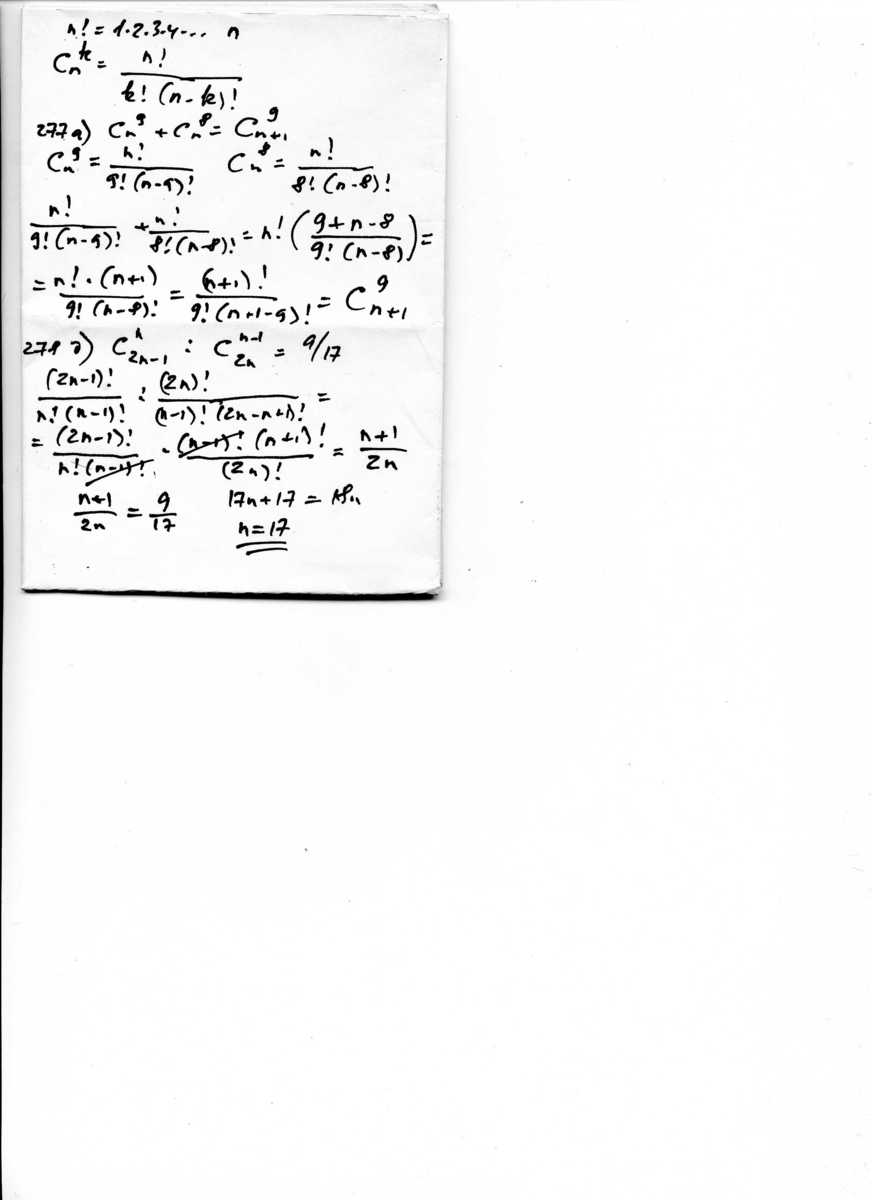 n! = 1·2·3·4··· n
C_n^k = n! / k! (n-k)!
277 a) C_n^9 + C_n^8 = C_{n+1}^9
C_n^9 = n! / 9! (n-9)!   C_n^8 = n! / 8! (n-8)!
n! / 9! (n-9)! + n! / 8! (n-8)! = n! ( 9+n-8 / 9! (n-8) ) =
= n! · (n+1) / 9! (n-8)! = (n+1)! / 9! (n+1-9)! = C_{n+1}^9
278 д) C_{2n-1}^n : C_{2n}^{n-1} = 9/17
(2n-1)! / n! (n-1)! : (2n)! / (n-1)! (2n-n+1)! =
= (2n-1)! / n! (n-1)! · (n-1)! (n+1)! / (2n)! = n+1 / 2n
n+1 / 2n = 9 / 17   17n+17 = 18n
n=17